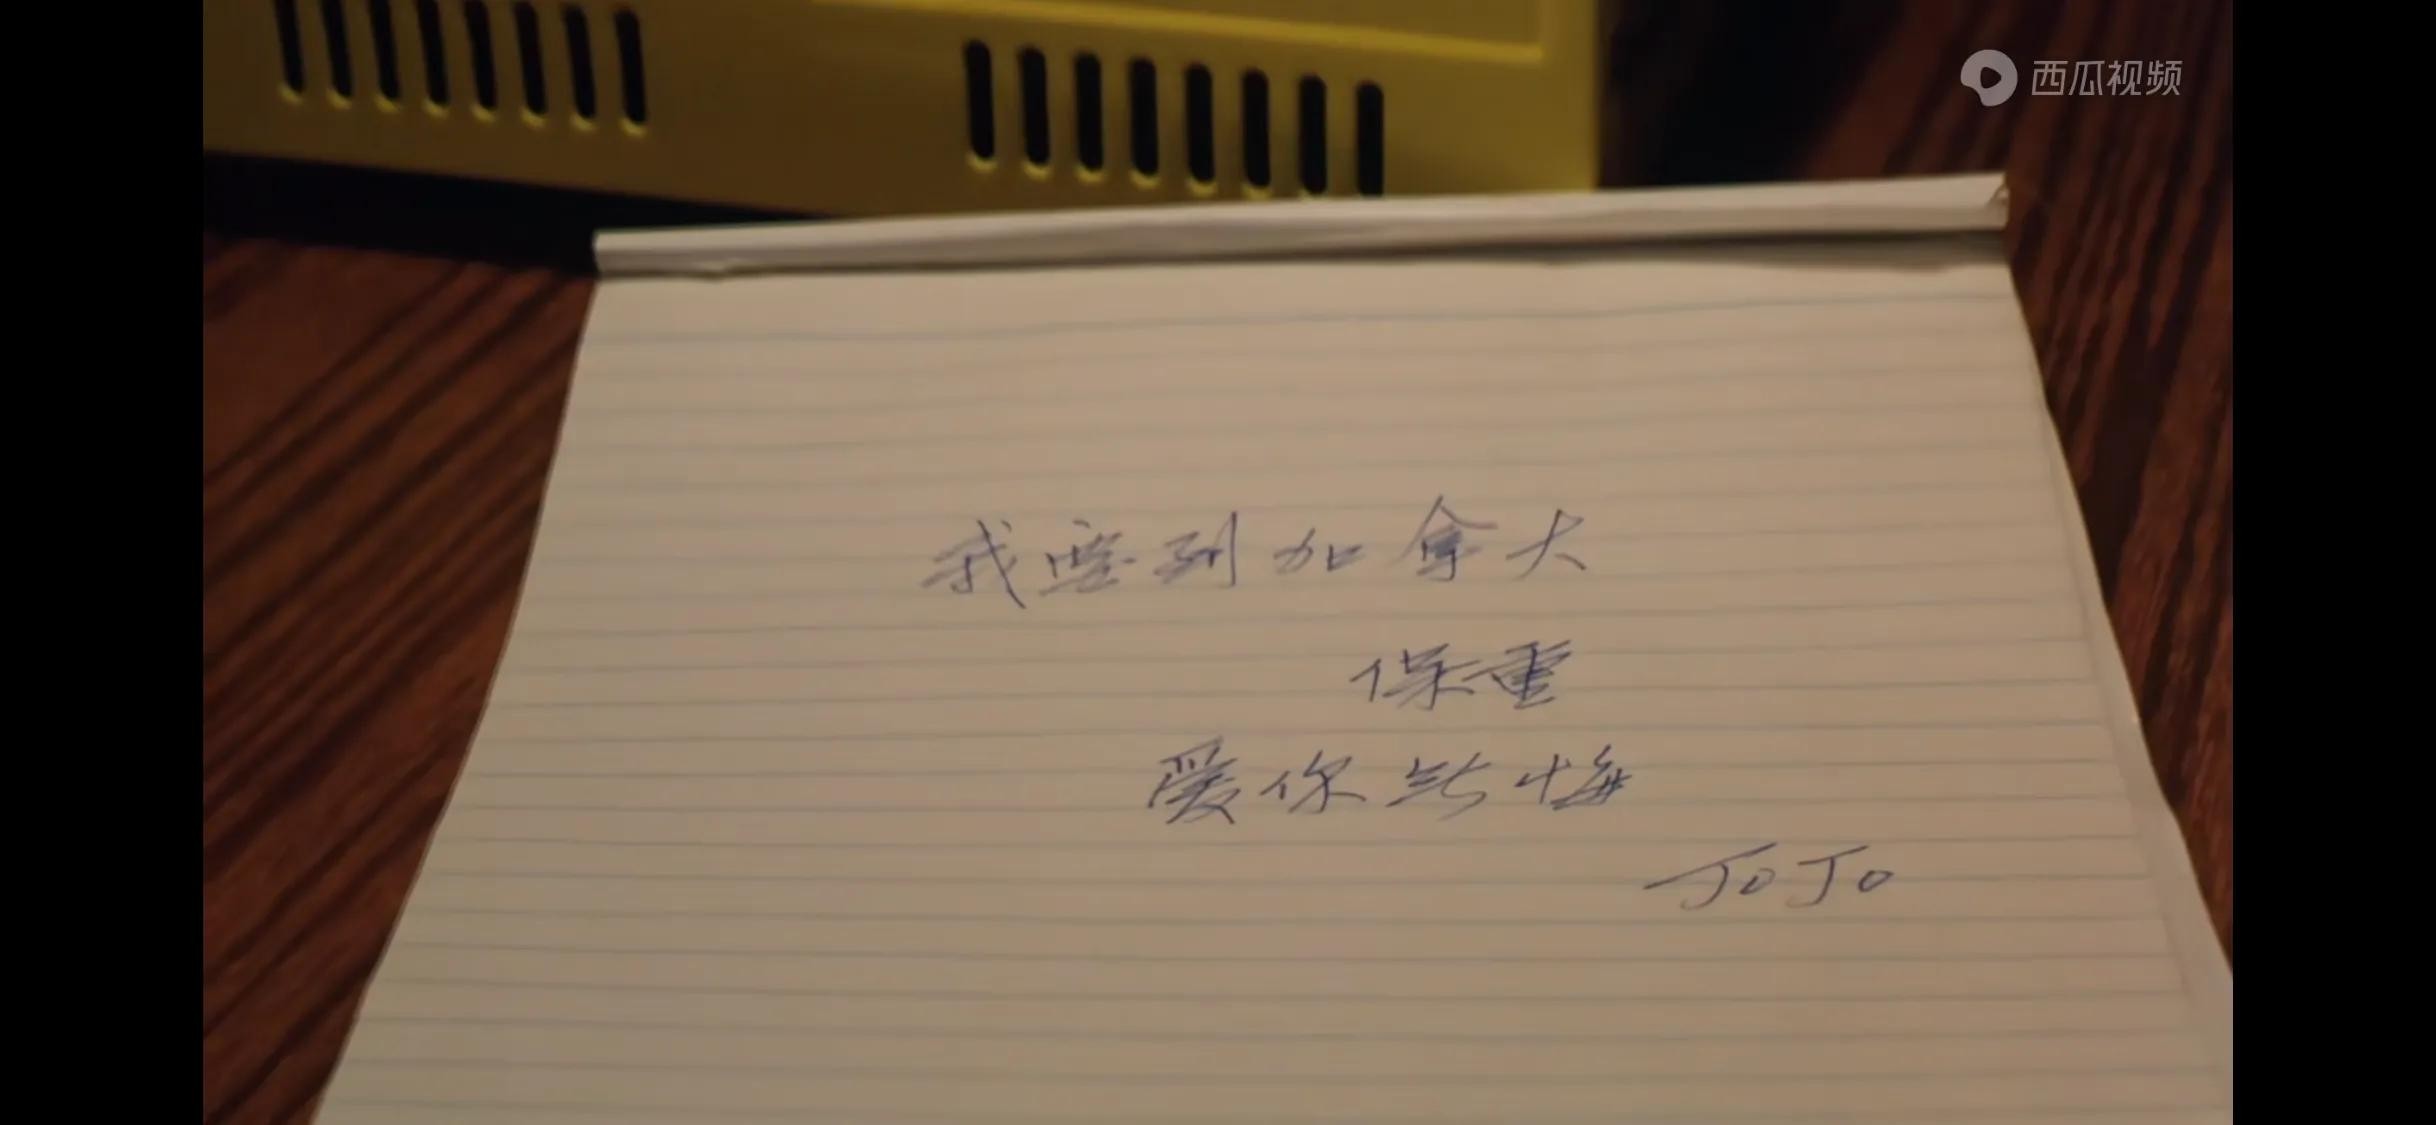 西瓜视频
我要到加拿大
保重
爱你无悔
JoJo